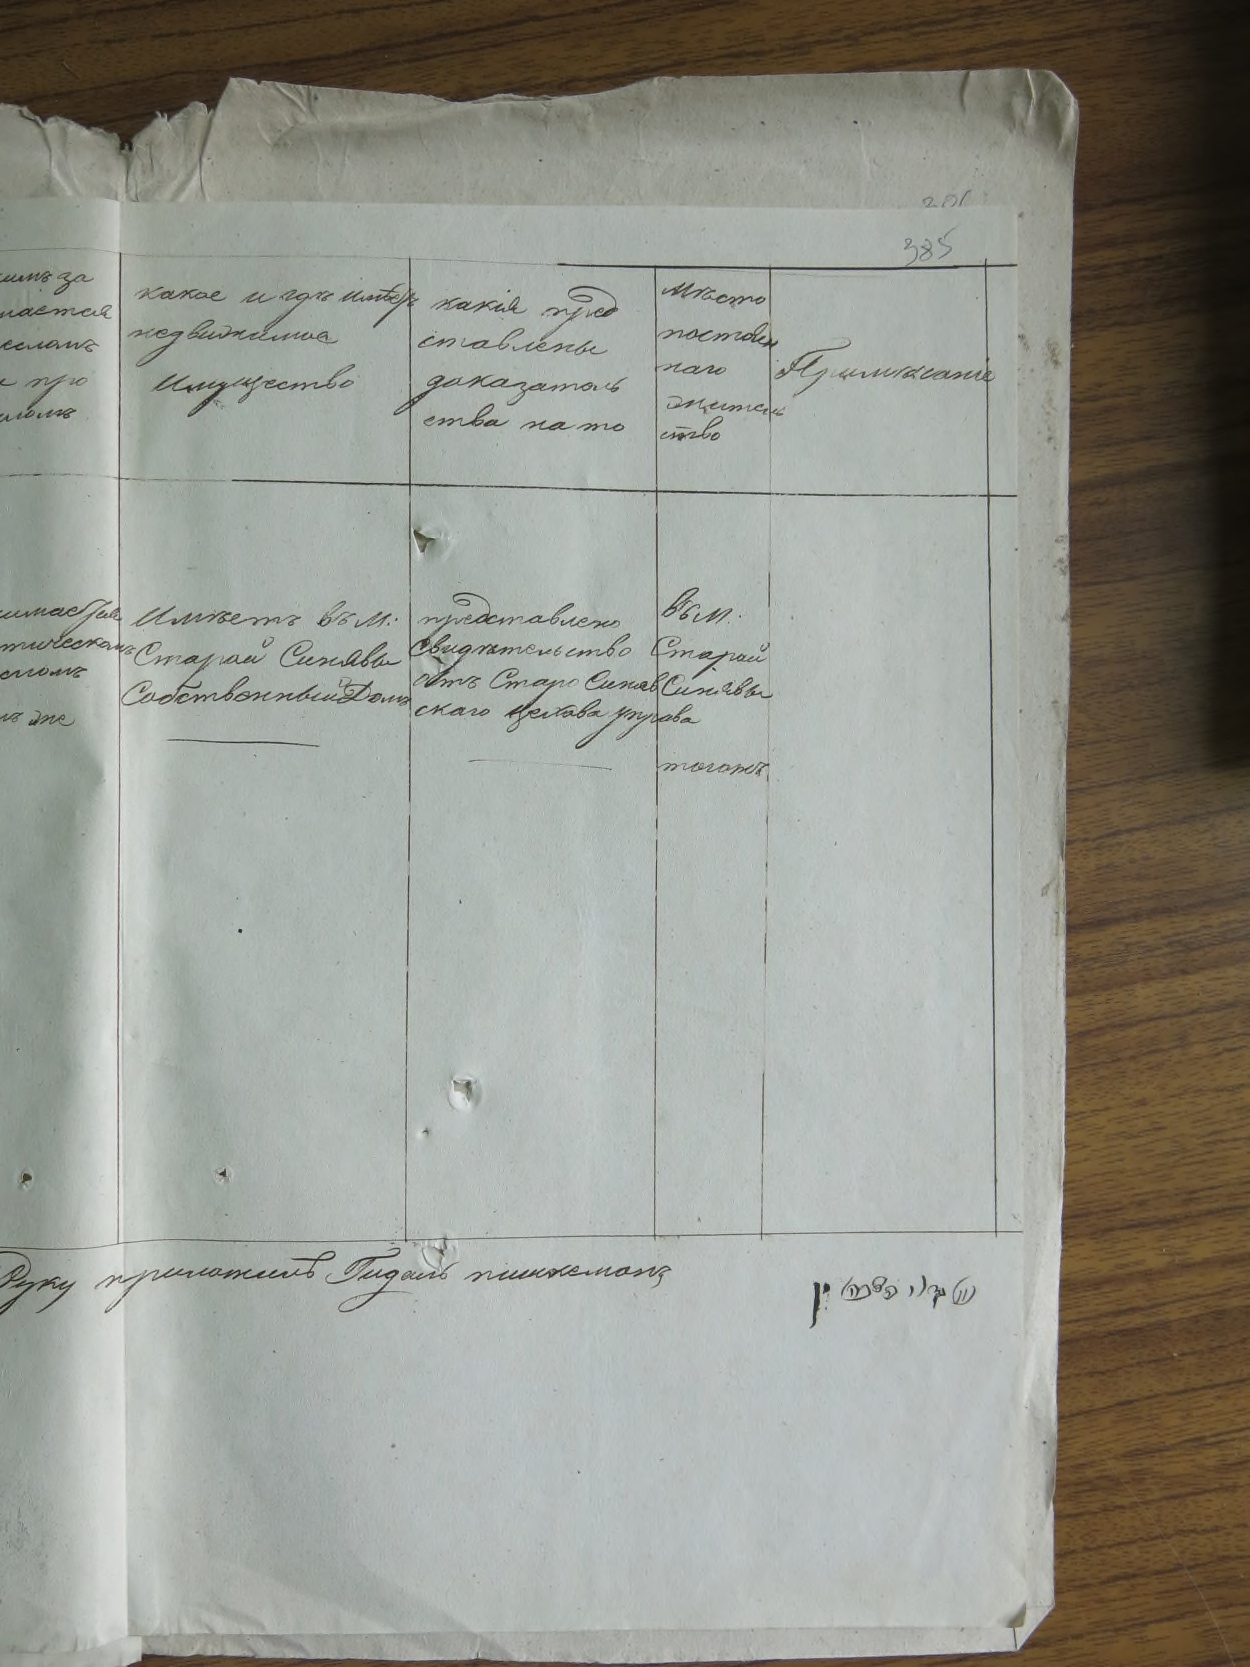 385
имъ за
мается
есломъ
про
какое и гдѣ имѣетъ
недвижимое
имущество
какія пред
ставлены
доказатель
ства на то
Мѣсто
постоян
наго
жительс
ство
Примѣчаніе
тическомъ
же
Имѣетъ въ М:
Старой Синявы
Собственный Домъ
представлено
Свидѣтельство
отъ Старо Синяв
скаго цехова управа
въ М:
Старой
Синявы
тогожъ
Руку приложилъ Гидаль